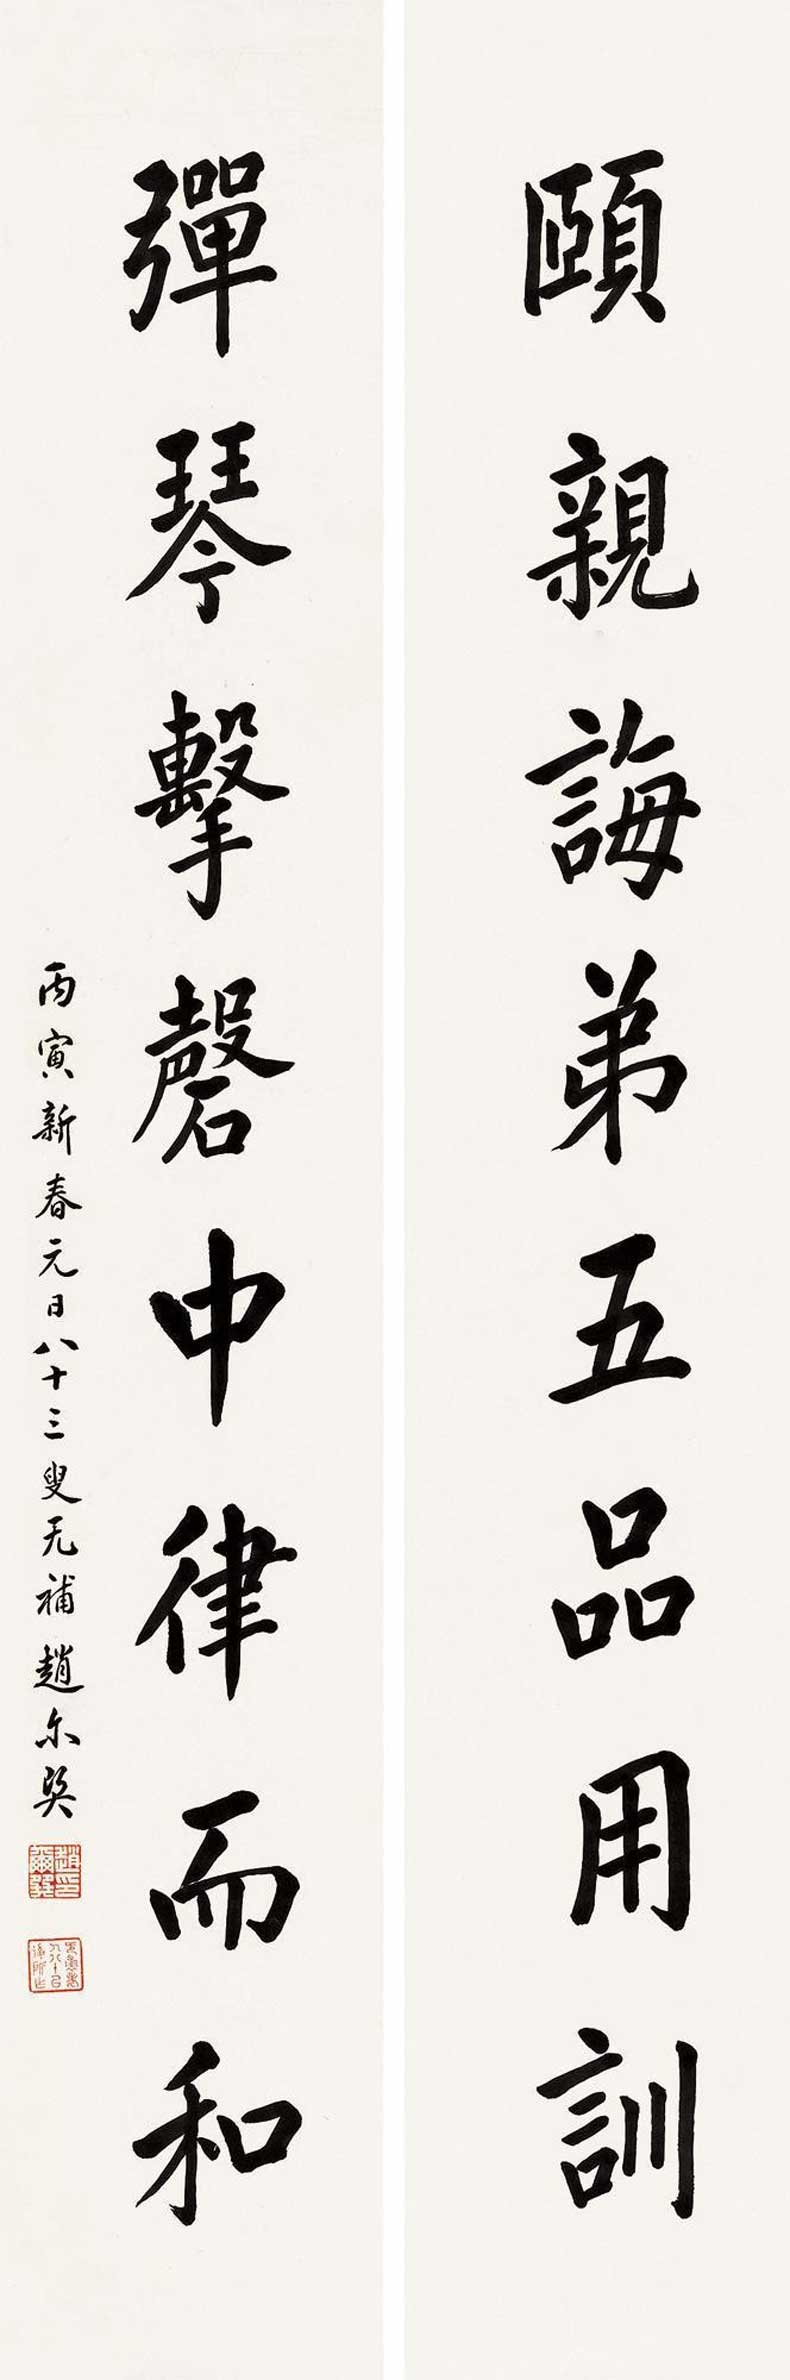 頤親誨弟五品用訓
彈琴擊磬中律而和
丙寅新春元日八十三叟无補趙尔巽
趙爾巽印